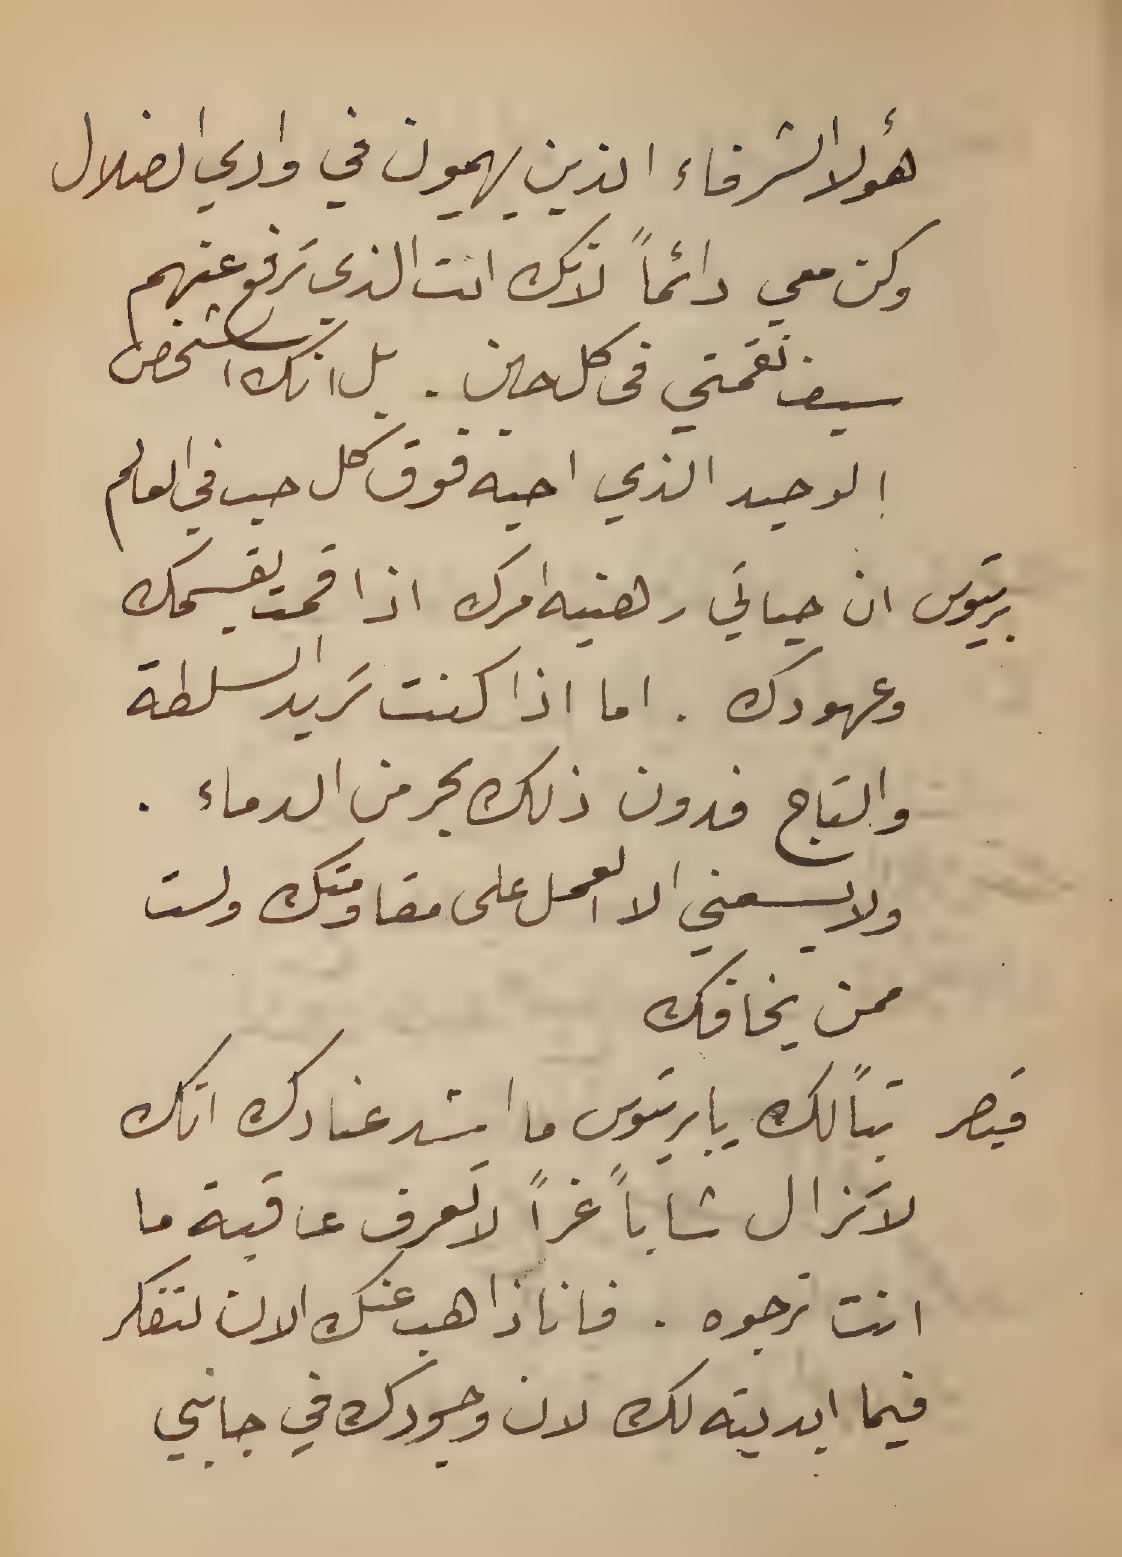 هؤلا الشرفاء الذين يهيمون في وادي الضلال
وكن معي دائماً لانك انت الذي ترفع عنهم
سيف نقمتي في كل حين . بل انك الشخص
الوحيد الذي احبه فوق كل حب في العالم
بريتوس ان حياتي رهينه امرك اذا قمت بقسمك
وعهودك . اما اذا كنت تريد السلطة
والتاج فدون ذلك بحر من الدماء .
ولا يسعني الا العمل على مقاومتك ولست
ممن يخافك
قيصر تباً لك يا بريتوس ما اشد عنادك انك
لا تزال شاباً غراً لا تعرف عاقبة ما
انت ترجوه . فانا ذاهب عنك الان لتفكر
فيما ابديته لك لان وجودك في جانبي